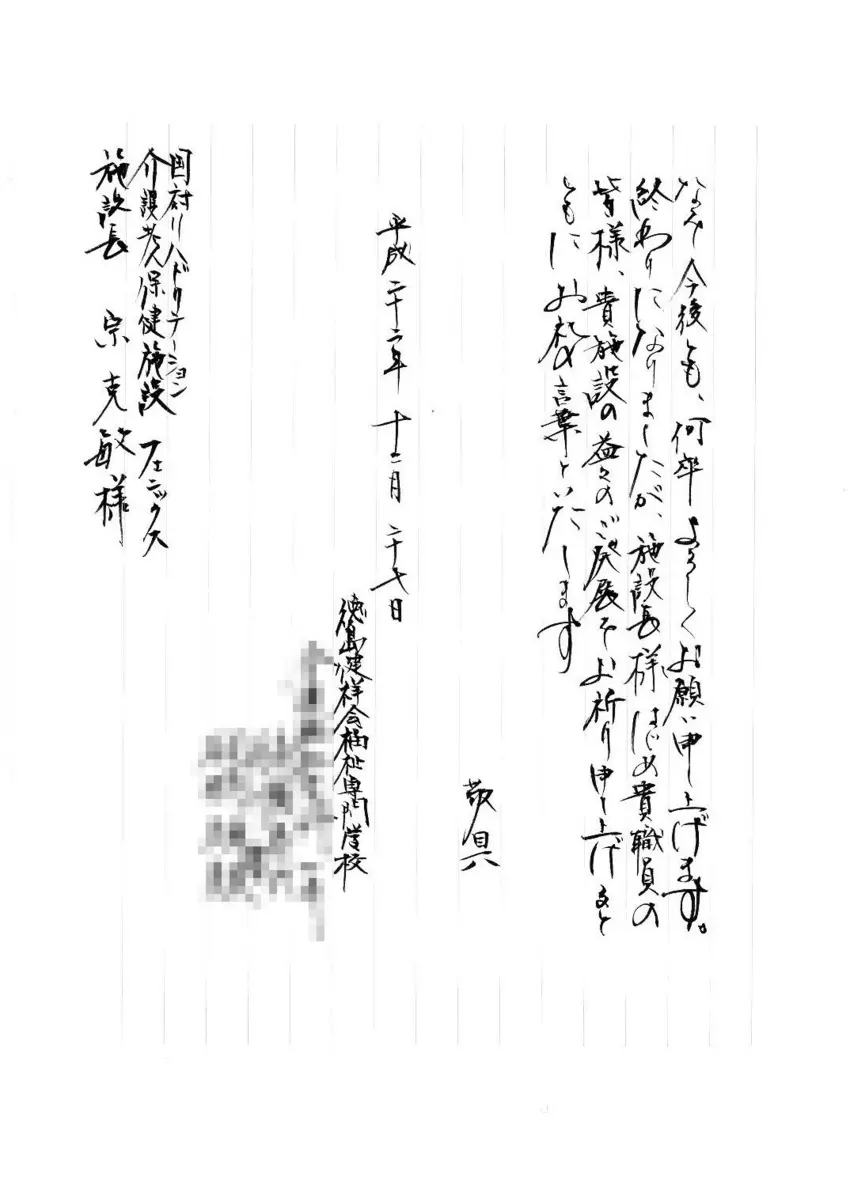 なお、今後とも、何卒よろしくお願い申し上げます。
終わりになりましたが、施設長様はじめ貴職員の
皆様、貴施設の益々のご発展をお祈り申し上げると
ともにお礼の言葉といたします
敬具
平成二十二年十二月二十七日
徳島健祥会福祉専門学校
国府リハビリテーション
介護老人保健施設 フェニックス
施設長 宗克敏様